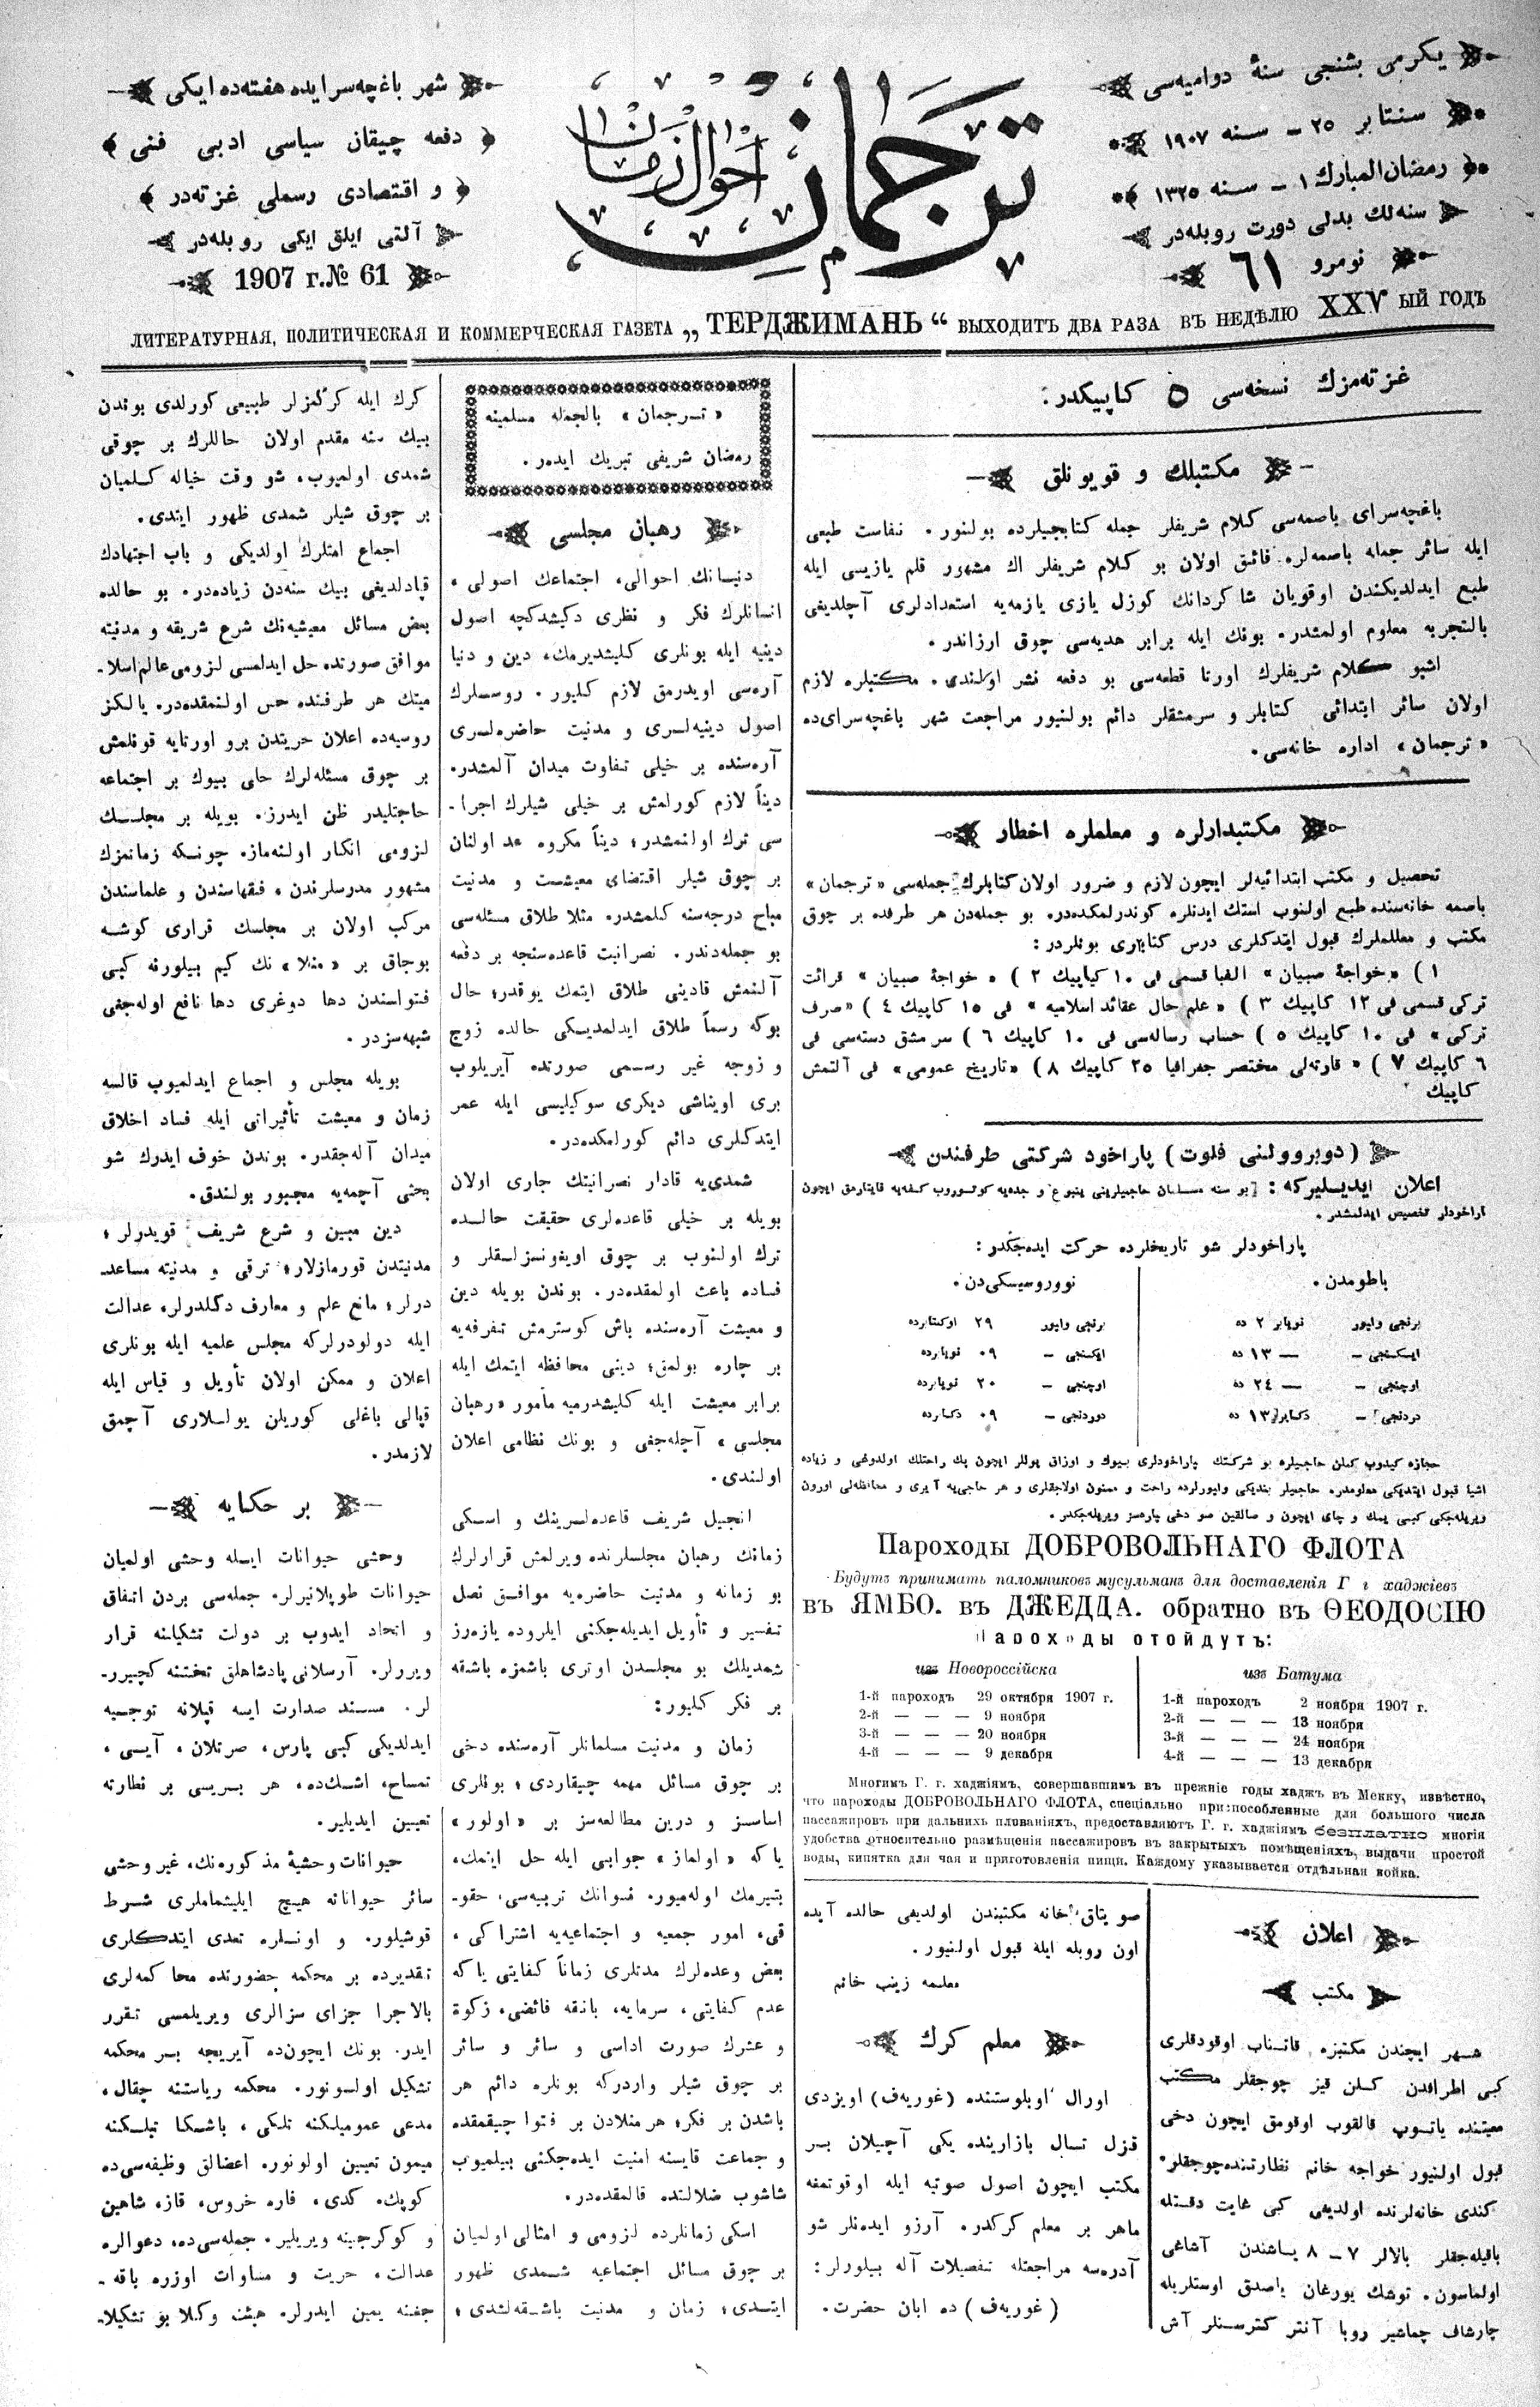 يكرمى بشنجى سنهٔ دواميه‌سى
سنتابر ٢٥ – سنه ١٩٠٧
رمضان المبارك ١ – سنه ١٣٢٥
سنه‌لك بدلى دورت روبله‌در
نومرو ٦١
ترجمان احوال زمان
شهر باغچه‌سرايده هفته‌ده ايكى
دفعه چيقان سياسى ادبى فنى
و اقتصادى رسملى غزته‌در
آلتى ايلق ايكى روبله‌در
1907 г. № 61
ЛИТЕРАТУРНАЯ, ПОЛИТИЧЕСКАЯ И КОММЕРЧЕСКАЯ ГАЗЕТА „ТЕРДЖИМАНЪ“ ВЫХОДИТЪ ДВА РАЗА ВЪ НЕДѢЛЮ XXV ЫЙ ГОДЪ
غزته‌مزك نسخه‌سى ٥ كاپيكدر:
مكتبلك و قويونلق
باغچه‌سراى باصمه‌سى كلام شريفلر جمله كتابجيلرده بولنور. نفاست طبعى
ايله سائر جمله باصمه‌لره فائق اولان بو كلام شريفلر اك مشهور قلم يازيسى ايله
طبع ايدلديكندن اوقويان شاكردانك كوزل يازى يازمه‌يه استعدادلرى آچلديغى
بالتجربه معلوم اولمشدر. بونك ايله برابر هديه‌سى چوق ارزاندر.
اشبو كلام شريفلرك اورتا قطعه‌سى بو دفعه نشر اولندى. مكتبلره لازم
اولان سائر ابتدائى كتابلر و سرمشقلر دائم بولنيور مراجعت شهر باغچه‌سراى‌ده
«ترجمان» اداره خانه‌سى.
مكتبدارلره و معلملره اخطار
تحصيل و مكتب ابتدائيه‌لر ايچون لازم و ضرور اولان كتابلرك جمله‌سى «ترجمان»
باصمه خانه‌سنده طبع اولنوب استك ايدنلره كوندرلمكده‌در. بو جمله‌دن هر طرفده بر چوق
مكتب و معلملرك قبول ايتدكلرى درس كتابلرى بونلردر:
١) «خواجهٔ صبيان» الفبا قسمى فى ١٠ كپايك ٢) «خواجهٔ صبيان» قرائت
تركى قسمى فى ١٢ كاپيك ٣) «علم حال عقائد اسلاميه» فى ١٥ كاپيك ٤) «صرف
تركى» فى ١٠ كاپيك ٥) حساب رساله‌سى فى ١٠ كاپيك ٦) سر مشق دسته‌سى فى
٦ كاپيك ٧) «قارته‌لى مختصر جغرافيا ٢٥ كاپيك ٨) «تاريخ عمومى» فى آلتمش
كاپيك
(دوبروولنى فلوت) پاراخود شركتى طرفندن
اعلان ايديليركه: بو سنه مسلمان حاجيلرينى ينبوع و جده‌يه كوتوروب كفه‌يه قايتارمق ايچون
پاراخودلر تخصيص ايدلمشدر.
پاراخودلر شو تاريخلرده حركت ايده‌جكدر:
باطومدن.
برنجى واپور نويابر ٢ ده
ايكنجى – — ١٣ ده
اوچنجى – — ٢٤ ده
دردنجى – دكابر ١٣ ده
نووروسيسكى‌دن.
برنجى واپور ٢٩ اوكتابرده
ايكنجى – ٠٩ نويابرده
اوچنجى – ٢٠ نويابرده
دوردنجى – ٠٩ دكابرده
حجازه كيدوب كلن حاجيلره بو شركتك پاراخودلرى بيوك و اوزاق يوللر ايچون پك راحتلك اولدوغى و زياده
اشيا قبول ايتديكى معلومدر. حاجيلر بنديكى واپورلرده راحت و ممنون اولاجقلرى و هر حاجى‌يه آيرى و محافظه‌لى اورون
ويريله‌جكى كبى يمك و چاى ايچون و صالقين صو دخى پاره‌سز ويريله‌جكدر.
Пароходы ДОБРОВОЛЬНАГО ФЛОТА
Будутъ принимать паломниковъ мусульманъ для доставленія Г г хаджіевъ
въ ЯМБО. въ ДЖЕДДА. обратно въ ѲЕОДОСІЮ
Пароходы отойдутъ:
изъ Новороссійска
1-й пароходъ 29 октября 1907 г.
2-й — — — 9 ноября
3-й — — — 20 ноября
4-й — — — 9 декабря
изъ Батума
1-й пароходъ 2 ноября 1907 г.
2-й — — — 13 ноября
3-й — — — 24 ноября
4-й — — — 13 декабря
Многимъ Г. г. хаджіямъ, совершавшимъ въ прежніе годы хаджъ въ Мекку, извѣстно,
что пароходы ДОБРОВОЛЬНАГО ФЛОТА, спеціально приспособленные для большого числа
пассажировъ при дальнихъ плованіяхъ, предоставляютъ Г. г. хаджіямъ безплатно многія
удобства относительно размѣщенія пассажировъ въ закрытыхъ помѣщеніяхъ, выдачи простой
воды, кипятка для чая и приготовленія пищи. Каждому указывается отдѣльная койка.
اعلان
مكتب
شهر ايچندن مكتبزه قاتناب اوقودقلرى
كبى اطرافدن كلن قيز چوجقلر مكتب
معيتنده ياتوب قالقوب اوقومق ايچون دخى
قبول اولنيور خواجه خانم نظارتنده چوجقلر
كندى خانه‌لرنده اولديغى كبى غايت دقتله
باقيله‌جقلر بالالر ٧ – ٨ ياشندن آشاغى
اولماسون. توشك يورغان ياصدق اوستلريله
چارشاف چماشير روبا آنتر كترسنلر آش
صو يتاق خانه مكتبندن اولديغى حالده آيده
اون روبله ايله قبول اولنيور.
معلمه زينب خانم
معلم كرك
اورال اوبلوستنده (غوريه‌ف) اويزدى
قزل تال بازارينده يكى آچيلان بر
مكتب ايچون اصول صوتيه ايله اوقوتمغه
ماهر بر معلم كركدر. آرزو ايده‌نلر شو
آدره‌سه مراجعتله تفصيلات آله بيلورلر:
(غوريه‌ف) ده ابان حضرت.
«ترجمان» بالجمله مسلمينه
رمضان شريفى تبريك ايدر.
رهبان مجلسى
دنيانك احوالى، اجتماعك اصولى،
انسانلرك فكر و نظرى دكيشدكچه اصول
دينيه ايله بونلرى كليشديرمك، دين و دنيا
آره‌سى اويدرمق لازم كليور. روسلرك
اصول دينيه‌لرى و مدنيت حاضره‌لرى
آره‌سنده بر خيلى تفاوت ميدان آلمشدر.
ديناً لازم كورلمش بر خيلى شيلرك اجرا-
سى ترك اولنمشدر؛ ديناً مكروه عد اولنان
بر چوق شيلر اقتضاى معيشت و مدنيت
مباح درجه‌سنه كلمشدر. مثلا طلاق مسئله‌سى
بو جمله‌دندر. نصرانيت قاعده‌سنجه بر دفعه
آلنمش قادينى طلاق ايتمك يوقدر؛ حال
بوكه رسماً طلاق ايدلمديكى حالده زوج
و زوجه غير رسمى صورتده آيريلوب
برى اويناشى ديكرى سوكيليسى ايله عمر
ايتدكلرى دائم كورلمكده‌در.
شمدى‌يه قادار نصرانيتك جارى اولان
بويله بر خيلى قاعده‌لرى حقيقت حالده
ترك اولنوب بر چوق اويغونسزلقلر و
فساده باعث اولمقده‌در. بوندن بويله دين
و معيشت آره‌سنده باش كوسترمش تفرقه‌يه
بر چاره بولمق؛ دينى محافظه ايتمك ايله
برابر معيشت ايله كليشدرميه مأمور «رهبان
مجلسى» آچله‌جغى و بونك نظامى اعلان
اولندى.
انجيل شريف قاعده‌لرينك و اسكى
زمانك رهبان مجلسلرنده ويرلمش قرارلرك
بو زمانه و مدنيت حاضره‌يه موافق نصل
تفسير و تأويل ايديله‌جكنى ايلروده يازه‌رز
شمديلك بو مجلسدن اوترى باشمزه باشقه
بر فكر كليور:
زمان و مدنيت مسلمانلر آره‌سنده دخى
بر چوق مسائل مهمه چيقاردى؛ بونلرى
اساسسز و درين مطالعه‌سز بر «اولور»
ياكه «اولماز» جوابى ايله حل ايتمك،
بتيرمك اوله‌ميور. نسوانك تربيه‌سى، حقو-
قى، امور جمعيه و اجتماعيه‌يه اشتراكى،
بعض وعده‌لرك مدتلرى زماناً كفايتى ياكه
عدم كفايتى، سرمايه، بانقه فائضى، زكوة
و عشرك صورت اداسى و سائر و سائر
بر چوق شيلر واردركه بونلره دائم هر
باشدن بر فكر؛ هر منلادن بر فتوا چيقمقده
و جماعت قايسنه امنيت ايده‌جكنى بيلميوب
شاشوب ضلالنده قالمقده‌در.
اسكى زمانلرده لزومى و امثالى اولميان
بر چوق مسائل اجتماعيه شمدى ظهور
ايتدى؛ زمان و مدنيت باشقه‌لندى؛
كرك ايله كركمزلر طبيعى كورلدى بوندن
بيك سنه مقدم اولان حاللرك بر چوقى
شمدى اولميوب، شو وقت خياله كلميان
بر چوق شيلر شمدى ظهور ايتدى.
اجماع امتلرك اولديكى و باب اجتهادك
قپادلديغى بيك سنه‌دن زياده‌در. بو حالده
بعض مسائل معيشيه‌نك شرع شريفه و مدنيته
موافق صورتده حل ايدلمسى لزومى عالم اسلا-
ميتك هر طرفنده حس اولنمقده‌در. يالكز
روسيه‌ده اعلان حريتدن برو اورتايه قونلمش
بر چوق مسئله‌لرك حلى بيوك بر اجتماعه
حاجتليدر ظن ايدرز. بويله بر مجلسك
لزومى انكار اولنه‌ماز. چونكه زمانمزك
مشهور مدرسلرندن، فقهاسندن و علماسندن
مركب اولان بر مجلسك قرارى كوشه
بوجاق بر «منلا» نك كيم بيلورنه كبى
فتواسندن دها دوغرى دها نافع اوله‌جغى
شبهه‌سزدر.
بويله مجلس و اجماع ايدلميوب قالسه
زمان و معيشت تأثيراتى ايله فساد اخلاق
ميدان آله‌جقدر. بوندن خوف ايدرك شو
بحثى آچمه‌يه مجبور بولندق.
دين مبين و شرع شريف قويدرلر؛
مدنيتدن قورمازلار؛ ترقى و مدنيته مساعد-
درلر؛ مانع علم و معارف دكلدرلر، عدالت
ايله دولودرلركه مجلس علميه ايله بونلرى
اعلان و ممكن اولان تأويل و قياس ايله
قپالى باغلى كوريلن يوللارى آچمق
لازمدر.
بر حكايه
وحشى حيوانات ايله وحشى اولميان
حيوانات طوپلانيرلر. جمله‌سى بردن اتفاق
و اتحاد ايدوب بر دولت تشكيلنه قرار
ويررلر. آرسلانى پادشاهلق تختنه كچيرر-
لر. مسند صدارت ايسه قپلانه توجيه
ايدلديكى كبى پارس، صرتلان، آيى،
تمساح، اشك‌ده، هر بريسى بر نظارته
تعيين ايديلير.
حيوانات وحشيهٔ مذكوره‌نك، غير وحشى
سائر حيواناته هيچ ايليشماملرى شرط
قوشيلور. و اونلره تعدى ايتدكلرى
تقديرده بر محكمه حضورنده محاكمه‌لرى
بالاجرا جزاى سزالرى ويريلمسى تقرر
ايدر. بونك ايچون‌ده آيريجه بر محكمه
تشكيل اولونور. محكمه رياستنه چقال،
مدعى عموميلكنه تلكى، باشكا تبلكنه
ميمون تعيين اولونور. اعضالق وظيفه‌سى‌ده
كوپك. كدى، فاره خروس، قاز، شاهين
و كوكرجينه ويريلير. جمله‌سى‌ده، دعوالره
عدالت، حريت و مساوات اوزره باقه-
جغنه يمين ايدرلر. هيئت وكلا بو تشكيلا-